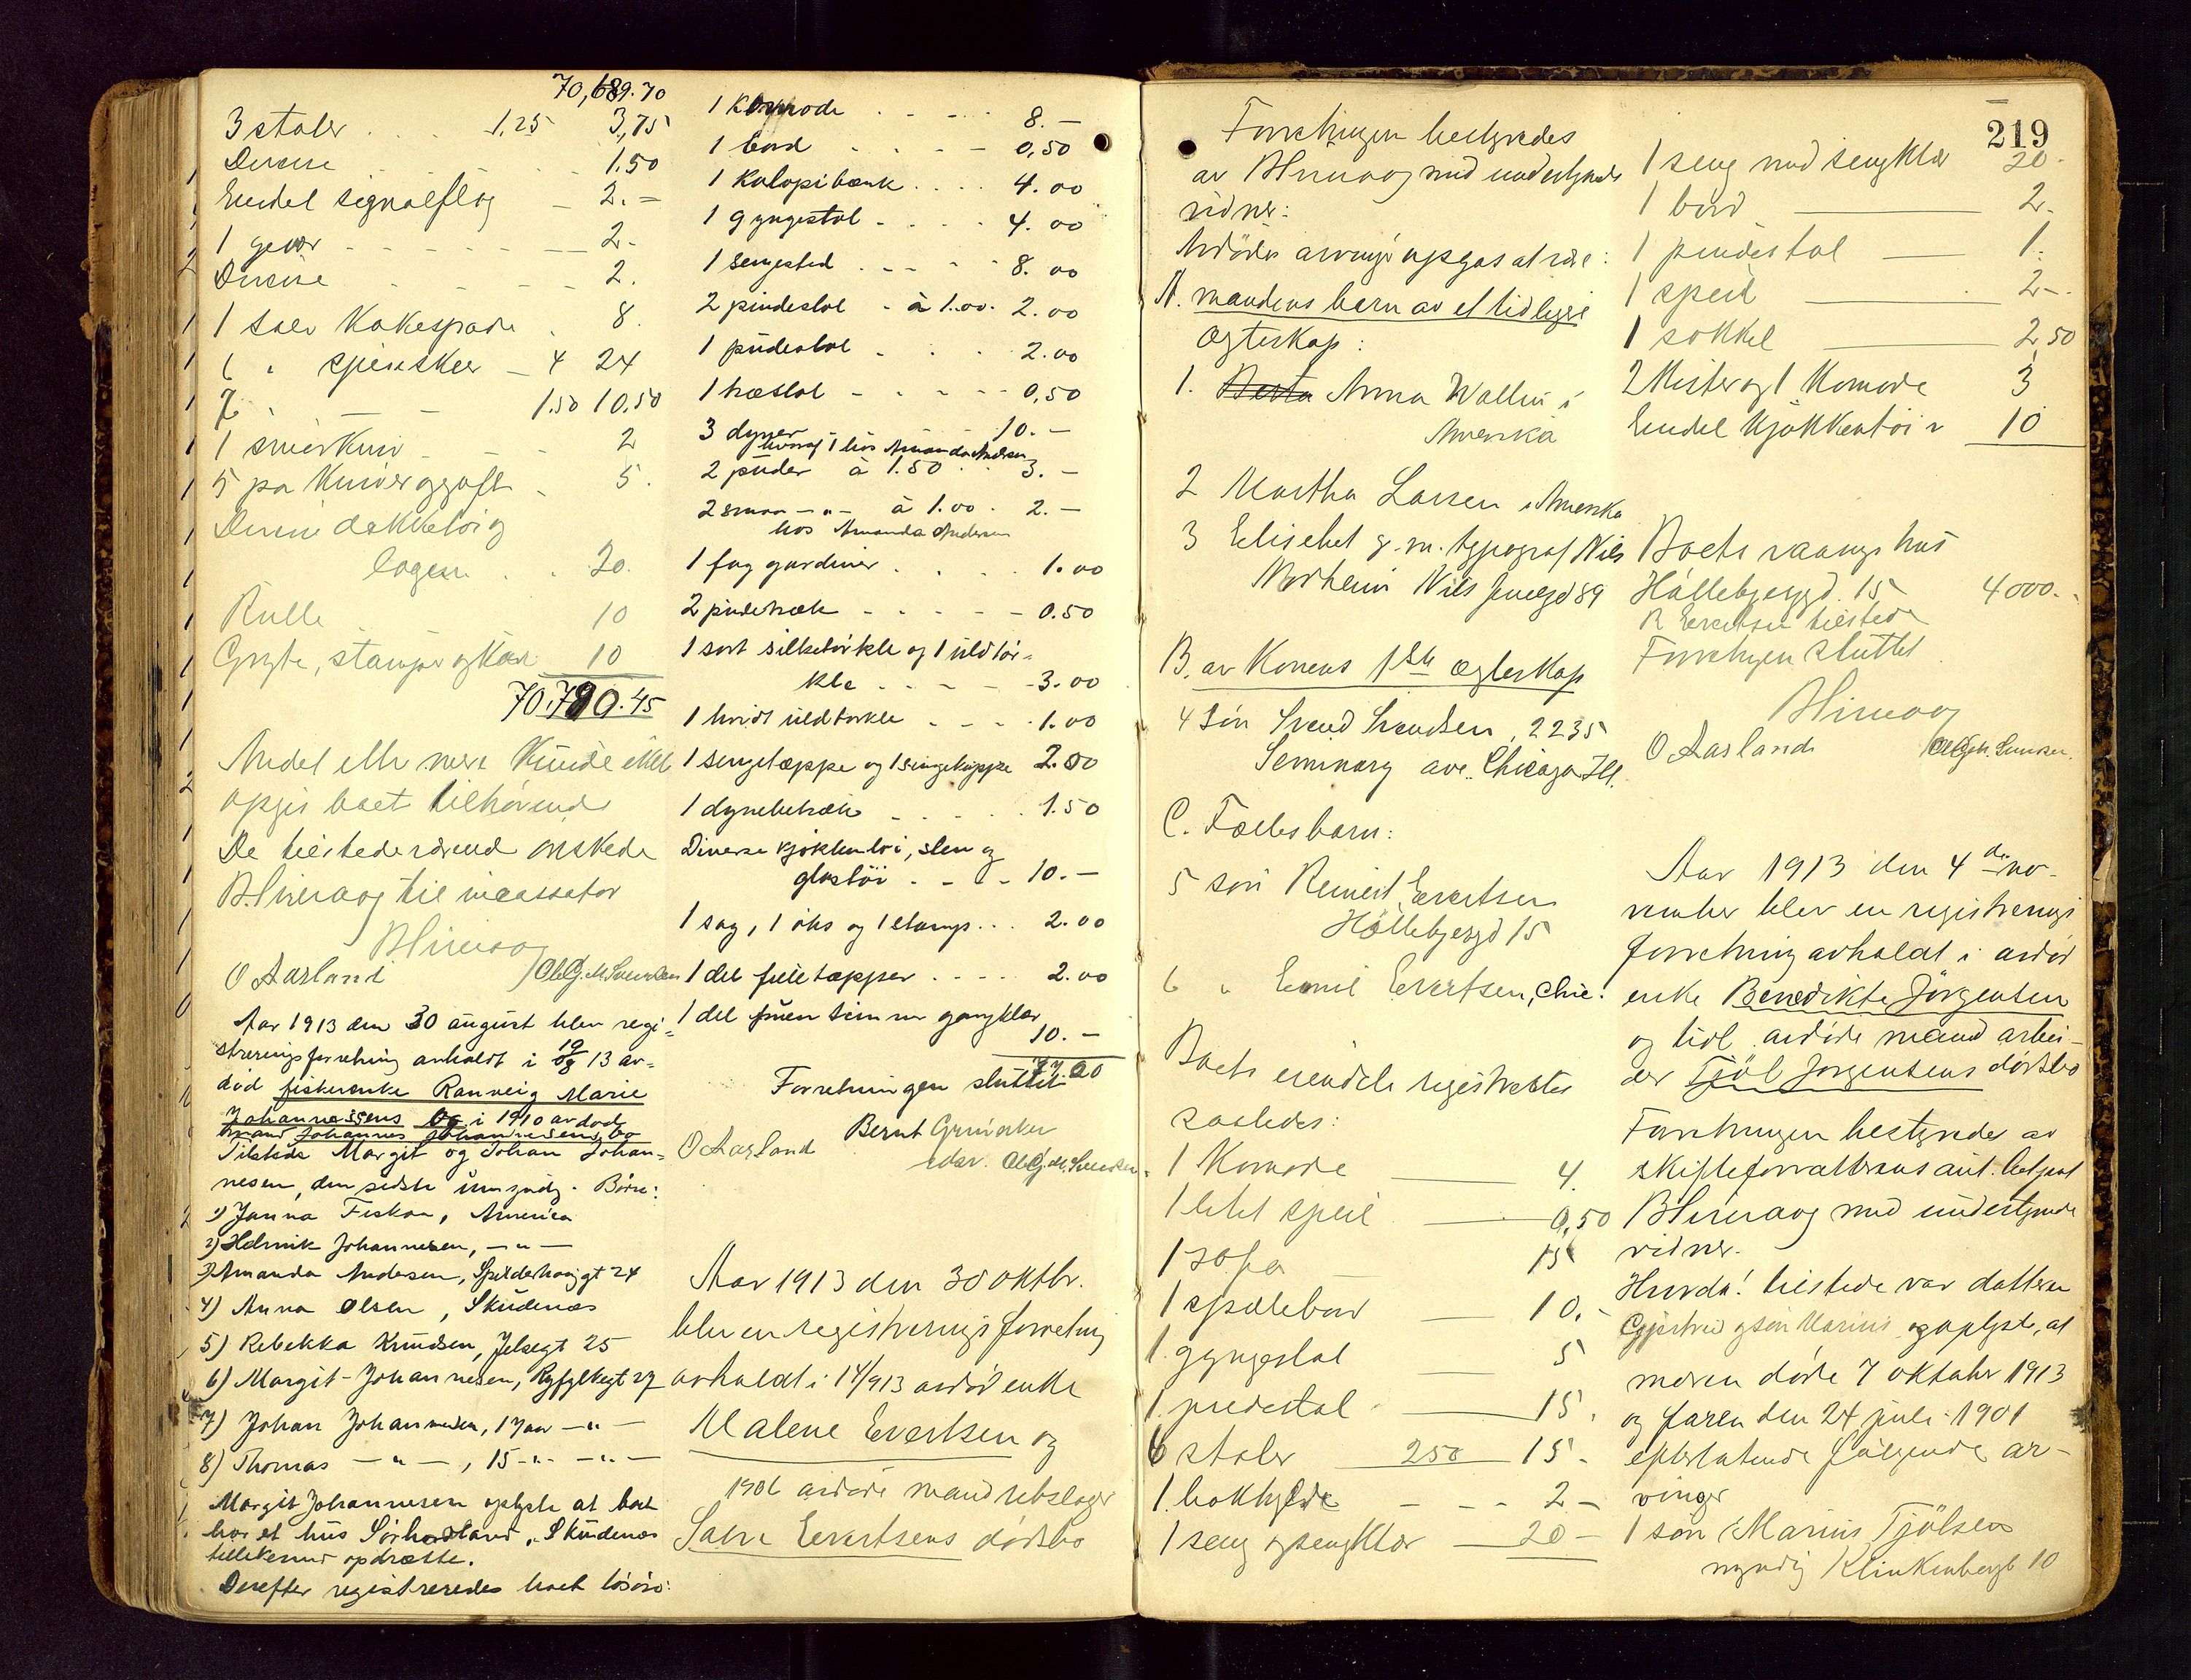 70,689.70
3 stoler . . . 1,25 3,75
Diverse . . . 1,50
Endel signalflag - 2.-
1 gevær - - - - - - 2.-
Diverse - - - - - 2.
1 sølv Kakespade . 8.
6 " spiseskeer - 4 24
7 " - - 1.50 10.50
1 smörkniv - - - 2
5 par Kniver og gafl. 5.
Diverse dekketöi og
lagen . . 20.
Rulle 10
Gryte, stamper og Kar 10
70,790.45
Andet eller mere Kunde ikke
opgis boet tilhörende
De tilstedeværende önskede
B. Hinaaog til incassator
BHinaaog
O Aasland Ole G. M. Svendsen
Aar 1913 den 30 august blev regi=
streringsforretning avholdt i 19/8 13 av=
död fiskerenke Ranveig Marie
Johannessens og i 1910 avdöde
mand Johannes Johannesens bo
Tilstede Margit og Johan Johan=
nesen, den sidste umyndig. Börn:
1) Janna Fiskaa, America
2) Helmik Johannesen, -"-
3) Amanda Andersen, Spilderhauggt 24
4) Anna Olsen, Skudenes
5) Rebekka Knudsen, Jelsegt 25
6) Margit Johannesen, Ryfylkegt 27
7) Johan Johannesen, 17 aar -"-
8) Thomas -"-, 15 -"- -"-
Margit Johannesen oplyste at boet
har et hus Sörhaland, Skudenes
tillikemed opdrætte.
Derefter registreredes boet lösöre:
1 Komode . - - - . 8.-
1 bord . . . - - 0,50
1 Kalopibænk . . . . 4.00
1 gyngestol - . . . . 4.00
1 sengested . . - - - 8.00
2 pindestol - à 1.00. 2.00
1 pudestol . . . 2.00
1 træstol - - - - - 0,50
3 dyner 10.-
hvoraf 1 hos Amanda Andersen
2 puder à 1.50 . . 3.-
2 smaa -"- à 1.00 . 2.-
hos Amanda Andersen
1 fag gardiner . . . . 1.00
2 pudetræk - - - - - 0.50
1 sort silketörkle og 1 uldtör=
kle . . - - - 3.00
1 hvidt uldtörkle - - - . 1.00
1 sengetæppe og 1 sengekappe 2.00
1 dynebetræk . . . . . 1.50
Diverse kjökkentöi, sten og
glastöi . - - - 10.-
1 sag, 1 öks og 1 stamp . . . 2.00
1 del filletæpper . - - - - 2.00
1 del fruentimmer gangklær
10.-
77.00
Forretningen sluttet
Bernt Grunaker
O Aasland edsv. Ole G. M. Svendsen
Aar 1913 den 30 oktbr.
blev en registrerings forretning
avholdt i 14/9 13 avdöd enke
Malene Evertsen og
1906 avdöde mand rebslager
Salve Evertsens dödsbo
219
Forretningen bestyredes
av BHinaaog med undertegnede
vidner:
Avdödes arvinger opgas at være:
A. mandens barn av et tidligere
ægteskap:
1. Berta Anna Wallin i
Amerika
2 Martha Larsen i Amerika
3 Elisebet g. m. typograf Nils
Norheim Nils Juelsgd 89
B. av Konens 1ste ægteskap
4 sön Svend Svendsen, 2235
Seminary ave. Chicago Ill.
C. Fællesbarn:
5 sön Reinert Evertsen
Höllebjergd 15
6 " Emil Evertsen, Chic.
Boets eiendele registrertes
saaledes:
1 Komode 4.
1 litet speil 0,50
1 sofa 15
1 spillebord 10.-
1 gyngestol 5
1 pudestol 15.
6 stoler 250 15-
1 bokhylde - - - 2-
1 seng og sengklær 20-
1 seng med sengklær 20-
1 bord 2.-
1 pindestol 1.
1 speil 2-.
1 sokkel 2,50
2 Kister og 1 Komode 3
Endel Kjökkentöi 10
Boets vaanings hus
Höllebjergd. 15 4000.-
R Evertsen tilstede
Forretningen sluttet
BHinaaog
O Aasland Ole G. M. Svendsen.
Aar 1913 den 4de no-
vember blev en registrerings
forretning avholdt i avdöd
enke Benedikte Jörgensen
og tidl. avdöde mand arbei-
der Tjöl Jörgensens dödsbo
Forretningen bestyredes av
skifteforvalterens aut. betjent
BHinaaog med undertegnede
vidner.
Hvorda! tilstede var datteren
og sön Marius og oplyste, at
moren döde 7 oktober 1913
og faren den 24 juli 1901
efterlatende fölgende ar-
vinger
1 sön Marius Tjölsen
myndig Klinkenbergt 10